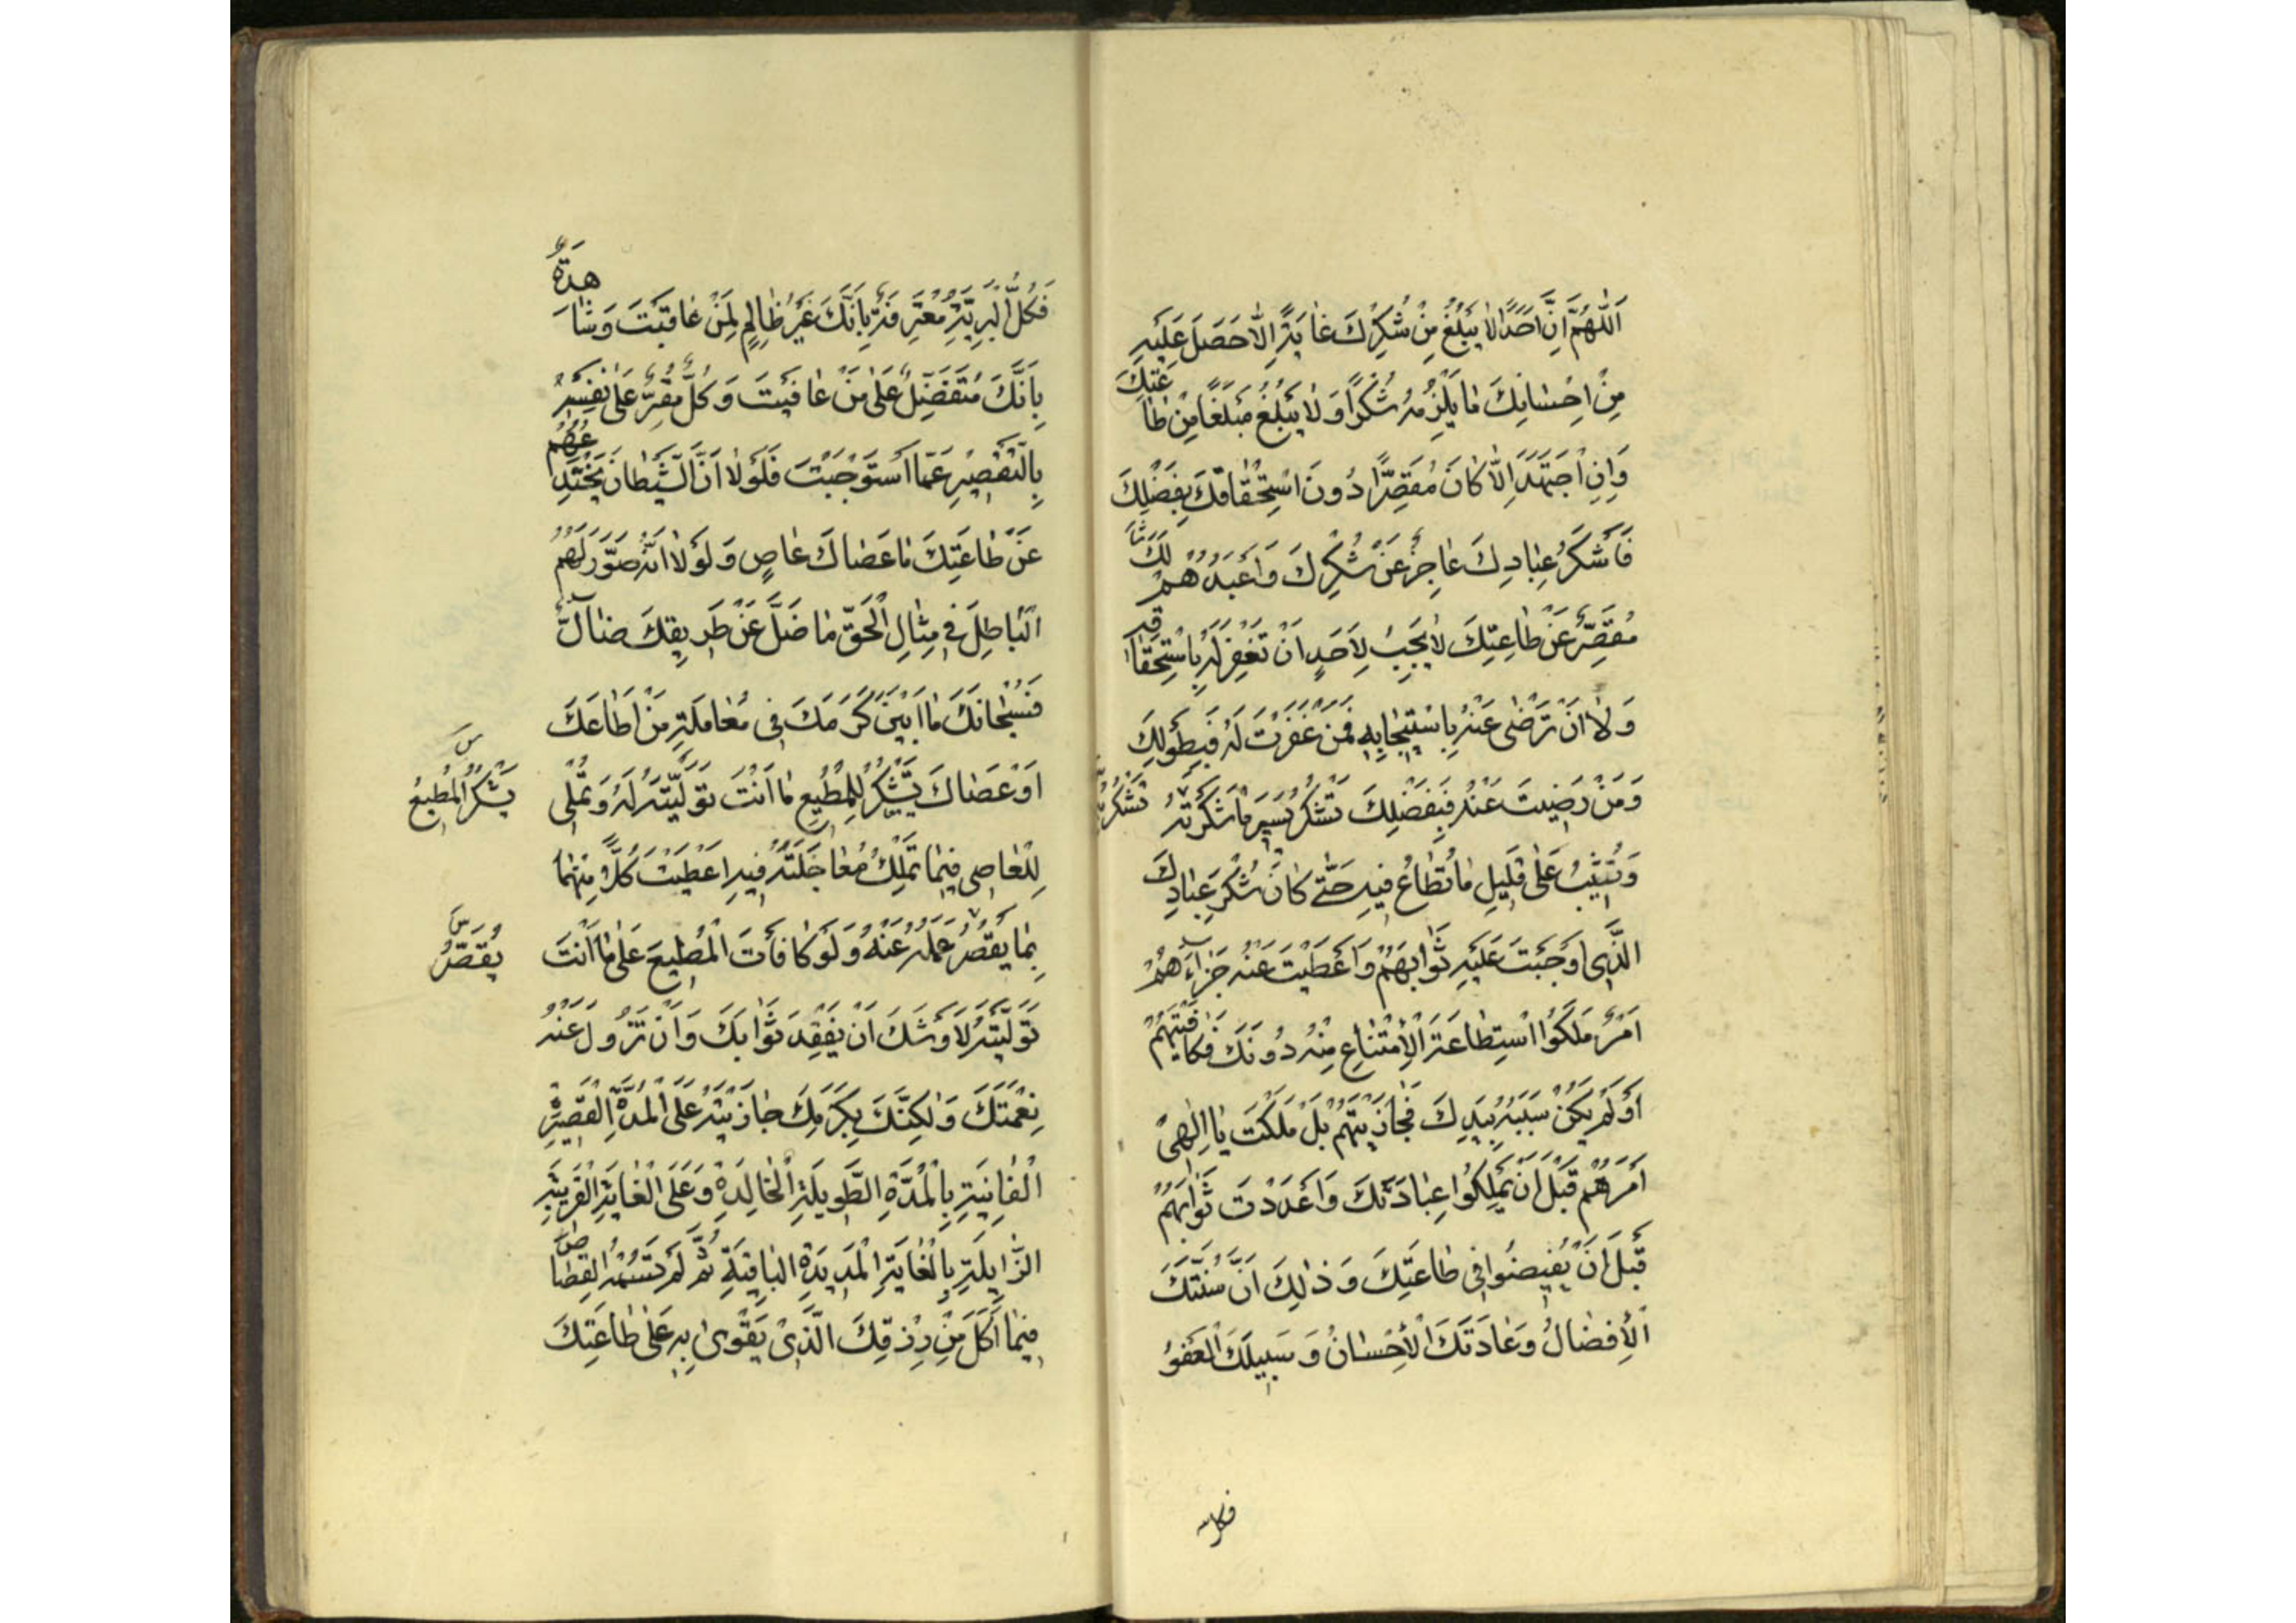 اَللّٰهُمَّ اِنَّ اَحَدًا لَا يَبْلُغُ مِنْ شُكْرِكَ غَايَةً اِلَّا حَصَلَ عَلَيْهِ
مِنْ اِحْسَانِكَ مَا يُلْزِمُهُ شُكْرًا وَلَا يَبْلُغُ مَبْلَغًا مِنْ طَاعَتِكَ
وَاِنِ اجْتَهَدَ اِلَّا كَانَ مُقَصِّرًا دُونَ اسْتِحْقَاقِكَ بِفَضْلِكَ
فَاَشْكَرُ عِبَادِكَ عَاجِزٌ عَنْ شُكْرِكَ وَاَعْبَدُهُمْ لَكَ
مُقَصِّرٌ عَنْ طَاعَتِكَ لَا يَجِبُ لِاَحَدٍ اَنْ تَغْفِرَ لَهُ بِاسْتِحْقَاقِهِ
وَلَا اَنْ تَرْضٰى عَنْهُ بِاسْتِيجَابِهِ فَمَنْ غَفَرْتَ لَهُ فَبِطَوْلِكَ
وَمَنْ رَضِيتَ عَنْهُ فَبِفَضْلِكَ تَشْكُرُ يَسِيرَ مَا شَكَرْتَهُ
تَشْكُرُ
وَتُثِيبُ عَلٰى قَلِيلِ مَا تُطَاعُ فِيهِ حَتّٰى كَانَ شُكْرَ عِبَادِكَ
الَّذِى اَوْجَبْتَ عَلَيْهِ ثَوَابَهُمْ وَاَعْطَيْتَ عَنْهُ جَزَاءَهُمْ
اَمْرٌ مَلَكُوا اسْتِطَاعَةَ الْاِمْتِنَاعِ مِنْهُ دُونَكَ فَكَافَيْتَهُمْ
اَوْ لَمْ يَكُنْ سَبَبُهُ بِيَدِكَ فَجَازَيْتَهُمْ بَلْ مَلَكْتَ يَا اِلٰهِى
اَمْرَهُمْ قَبْلَ اَنْ يَمْلِكُوا عِبَادَتَكَ وَاَعْدَدْتَ ثَوَابَهُمْ
قَبْلَ اَنْ يُفِيضُوا فِى طَاعَتِكَ وَذٰلِكَ اَنَّ سُنَّتَكَ
الْاِفْضَالُ وَعَادَتَكَ الْاِحْسَانُ وَسَبِيلَكَ الْعَفْوُ
فكل
فَكُلُّ الْبَرِيَّةِ مُعْتَرِفَةٌ بِاَنَّكَ غَيْرُ ظَالِمٍ لِمَنْ عَاقَبْتَ وَشَاهِدَةٌ
بِاَنَّكَ مُتَفَضِّلٌ عَلٰى مَنْ عَافَيْتَ وَكُلٌّ مُقِرٌّ عَلٰى نَفْسِهِ
بِالتَّقْصِيرِ عَمَّا اسْتَوْجَبْتَ فَلَوْلَا اَنَّ الشَّيْطَانَ يَخْتَدِعُهُمْ
عَنْ طَاعَتِكَ مَا عَصَاكَ عَاصٍ وَلَوْلَا اَنَّهُ صَوَّرَ لَهُمُ
الْبَاطِلَ فِى مِثَالِ الْحَقِّ مَا ضَلَّ عَنْ طَرِيقِكَ ضَالٌّ
فَسُبْحَانَكَ مَا اَبْيَنَ كَرَمَكَ فِى مُعَامَلَةِ مَنْ اَطَاعَكَ
اَوْ عَصَاكَ تَشْكُرُ لِلْمُطِيعِ مَا اَنْتَ تَوَلَّيْتَهُ لَهُ وَتُمْلِى
س
يَشْكُرُ الْمُطِيعُ
لِلْعَاصِى فِيمَا تَمْلِكُ مُعَاجَلَتَهُ فِيهِ اَعْطَيْتَ كُلًّا مِنْهُمَا
بِمَا يَقْصُرُ عَمَلُهُ عَنْهُ وَلَوْ كَافَاْتَ الْمُطِيعَ عَلٰى مَا اَنْتَ
س
يُقَصِّرُ
تَوَلَّيْتَهُ لَاَوْشَكَ اَنْ يَفْقِدَ ثَوَابَكَ وَاَنْ تَزُولَ عَنْهُ
نِعْمَتُكَ وَلٰكِنَّكَ بِكَرَمِكَ جَازَيْتَهُ عَلَى الْمُدَّةِ الْقَصِيرَةِ
الْفَانِيَةِ بِالْمُدَّةِ الطَّوِيلَةِ الْخَالِدَةِ وَعَلَى الْغَايَةِ الْقَرِيبَةِ
الزَّايِلَةِ بِالْغَايَةِ الْمَدِيدَةِ الْبَاقِيَةِ ثُمَّ لَمْ تَسُمْهُ الْقِصَاصَ
فِيمَا اَكَلَ مِنْ رِزْقِكَ الَّذِى يَقْوٰى بِهِ عَلٰى طَاعَتِكَ